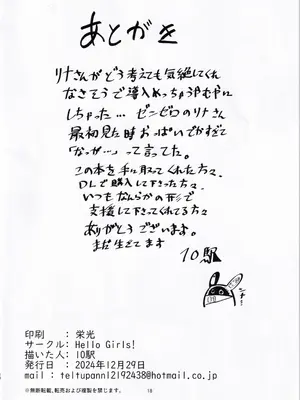 あとがき
リナさんがどう考えても気絶してくれ
なさそうで導入めっちゃうやむやに
しちゃった… ゼンゼロのリナさん
最初見た時おっぱいでかすぎて
「なっが…」って言ってた。
この本を手に取ってくれた方々、
DLで購入して下さった方々、
いつもなんらかの形で
支援して下さってくれてる方々
ありがとうございます。
まだ生きてます
10駅
ンナー
印刷 : 栄光
サークル: Hello Girls!
描いた人: 10駅
発行日 : 2024年12月29日
mail : teltupann12192438@hotmail.co.jp
※無断転載,転売および複製を禁じます。
18